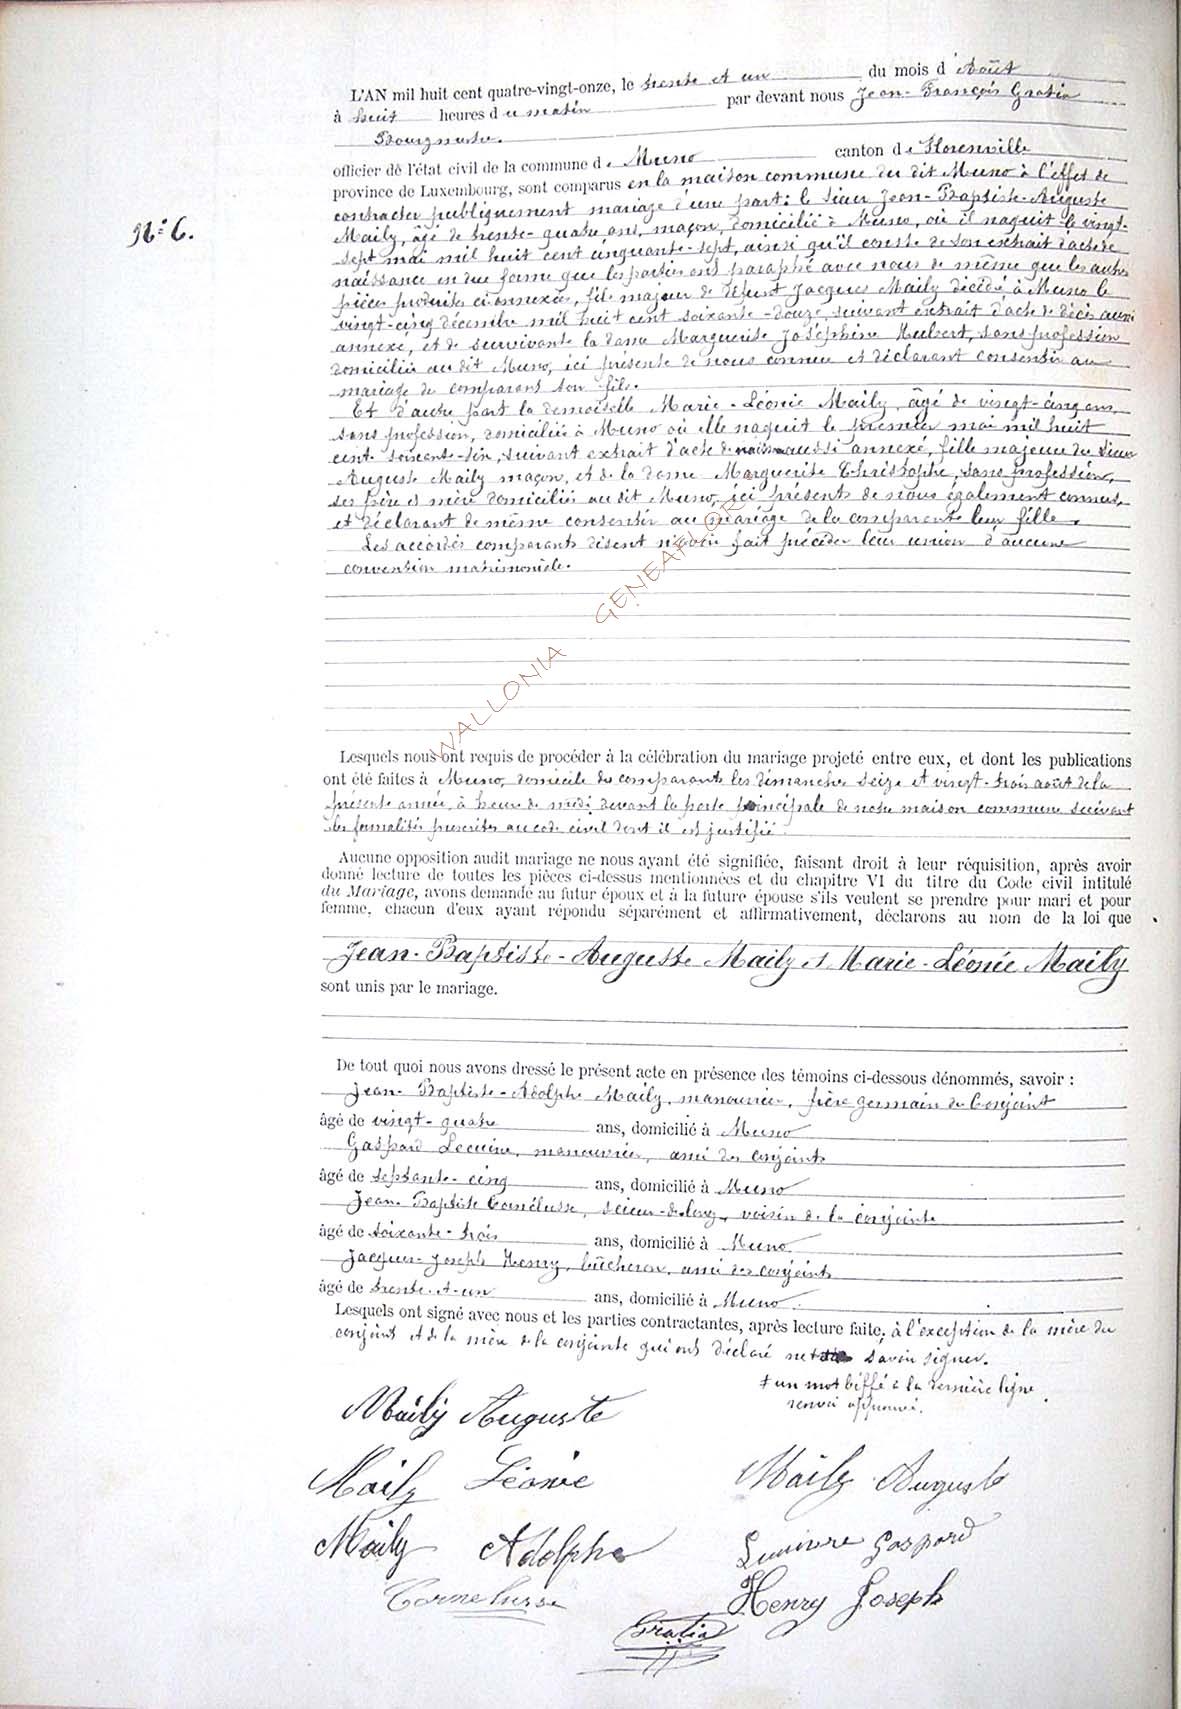 L'AN mil huit cent quatre-vingt-onze, le trente et un du mois d'Août
à huit heures du matin par devant nous Jean-François Gratia
Bourgmestre.
officier de l'état civil de la commune de Muno canton de Florenville
province de Luxembourg, sont comparus en la maison commune du dit Muno à l'effet de
contracter publiquement mariage d'une part: le sieur Jean-Baptiste-Auguste
N° 6.
Maily, âgé de trente-quatre ans, maçon, domicilié à Muno, où il naquit le vingt-
sept mai mil huit cent cinquante-sept, ainsi qu'il conste de son extrait d'acte de
naissance en due forme que les parties ont paraphé avec nous de même que les autres
pièces produites ci-annexées, fils majeur de défunt Jacques Maily décédé à Muno le
vingt-cinq décembre mil huit cent soixante-douze, suivant extrait d'acte de décès aussi
annexé, et de survivante la dame Marguerite Joséphine Hubert, sans profession
domiciliée au dit Muno, ici présente de nous connue et déclarant consentir au
mariage du comparant son fils.
Et d'autre part la demoiselle Marie-Léonie Maily, âgé de vingt-cinq ans,
sans profession, domiciliée à Muno où elle naquit le premier mai mil huit
cent soixante-six, suivant extrait d'acte de aussi annexé, fille majeure du sieur
Auguste Maily maçon, et de la dame Marguerite Christophe, sans profession,
ses père et mère domiciliés au dit Muno, ici présents de nous également connus,
et déclarant de même consentir au mariage de la comparante leur fille.
Les accordés comparants disent n'avoir fait précéder leur union d'aucune
convention matrimoniale.
WALLONIA GENEAFLORE
Lesquels nous ont requis de procéder à la célébration du mariage projeté entre eux, et dont les publications
ont été faites à Muno, domicile des comparants les dimanches seize et vingt-trois août de la
présente année, à heure de midi devant la porte principale de notre maison commune suivant
les formalités prescrites au code civil dont il est justifié.
Aucune opposition audit mariage ne nous ayant été signifiée, faisant droit à leur réquisition, après avoir
donné lecture de toutes les pièces ci-dessus mentionnées et du chapitre VI du titre du Code civil intitulé
du Mariage, avons demandé au futur époux et à la future épouse s'ils veulent se prendre pour mari et pour
femme, chacun d'eux ayant répondu séparément et affirmativement, déclarons au nom de la loi que
Jean-Baptiste-Auguste Maily et Marie-Léonie Maily
sont unis par le mariage.
De tout quoi nous avons dressé le présent acte en présence des témoins ci-dessous dénommés, savoir :
Jean-Baptiste-Adolphe Maily, manouvrier, frère germain du Conjoint
âgé de vingt-quatre ans, domicilié à Muno
Gaspard manouvrier, ami des conjoints
âgé de septante-cinq ans, domicilié à Muno
Jean-Baptiste Cornélusse, scieur-de-long, voisin de la conjointe
âgé de soixante-trois ans, domicilié à Muno
Jacques-Joseph Henry, bûcheron, ami des conjoints
âgé de trente-et-un ans, domicilié à Muno.
Lesquels ont signé avec nous et les parties contractantes, après lecture faite, à l'exception de la mère du
conjoint et de la mère de la conjointe qui ont déclaré ne savoir signer.
‡ un mot biffé à la dernière ligne
renvoi approuvé.
Maily Auguste
Maily Léonie Maily Auguste
Maily Adolphe Gaspard
Cornelusse Henry Joseph
Gratia